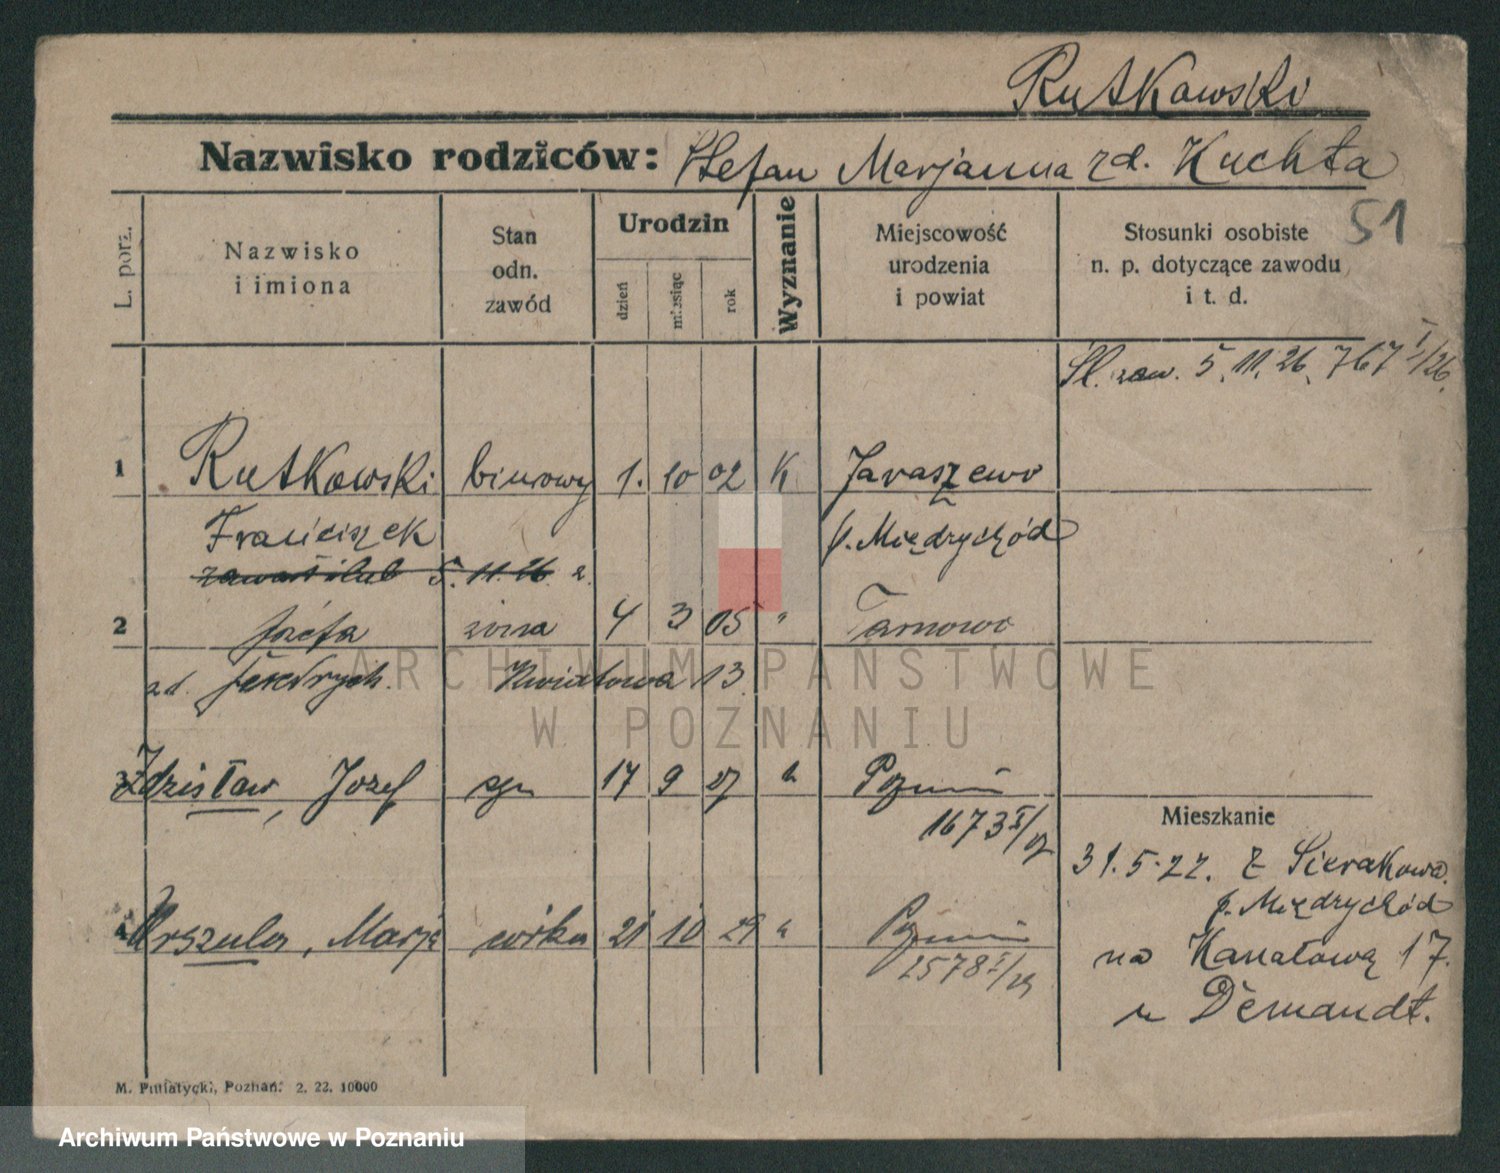 Rutkowski
Nazwisko rodziców: Stefan Marjanna zd. Kuchta
51
L. porz.
Nazwisko i imiona
Stan odn. zawód
Urodzin
dzień
miesiąc
rok
Wyznanie
Miejscowość urodzenia i powiat
Stosunki osobiste n. p. dotyczące zawodu i t. d.
Śl. zaw. 5. 11. 26. 767 I/26.
1 Rutkowski biurowy 1. 10 02 K Jaraszewo
Franciszek p. Międrychód
zawarł ślub 5. 11. 26 r.
2 Józefa żona 4 3 05 " Tarnowo
zd. Kwiatowa 13
3 Zdzisław, Jozef syn 17 9 27 " Poznań
1673 I/27
Mieszkanie
31.5.22. z Sierakowa
p. Międrychód
4 Urszula, Marja córka 21 10 29 " Poznań
2578 I/29
na Kanałową 17.
u Demandt.
M. Putiatycki, Poznań. 2. 22. 10000
ARCHIWUM PAŃSTWOWE
W POZNANIU
Archiwum Państwowe w Poznaniu